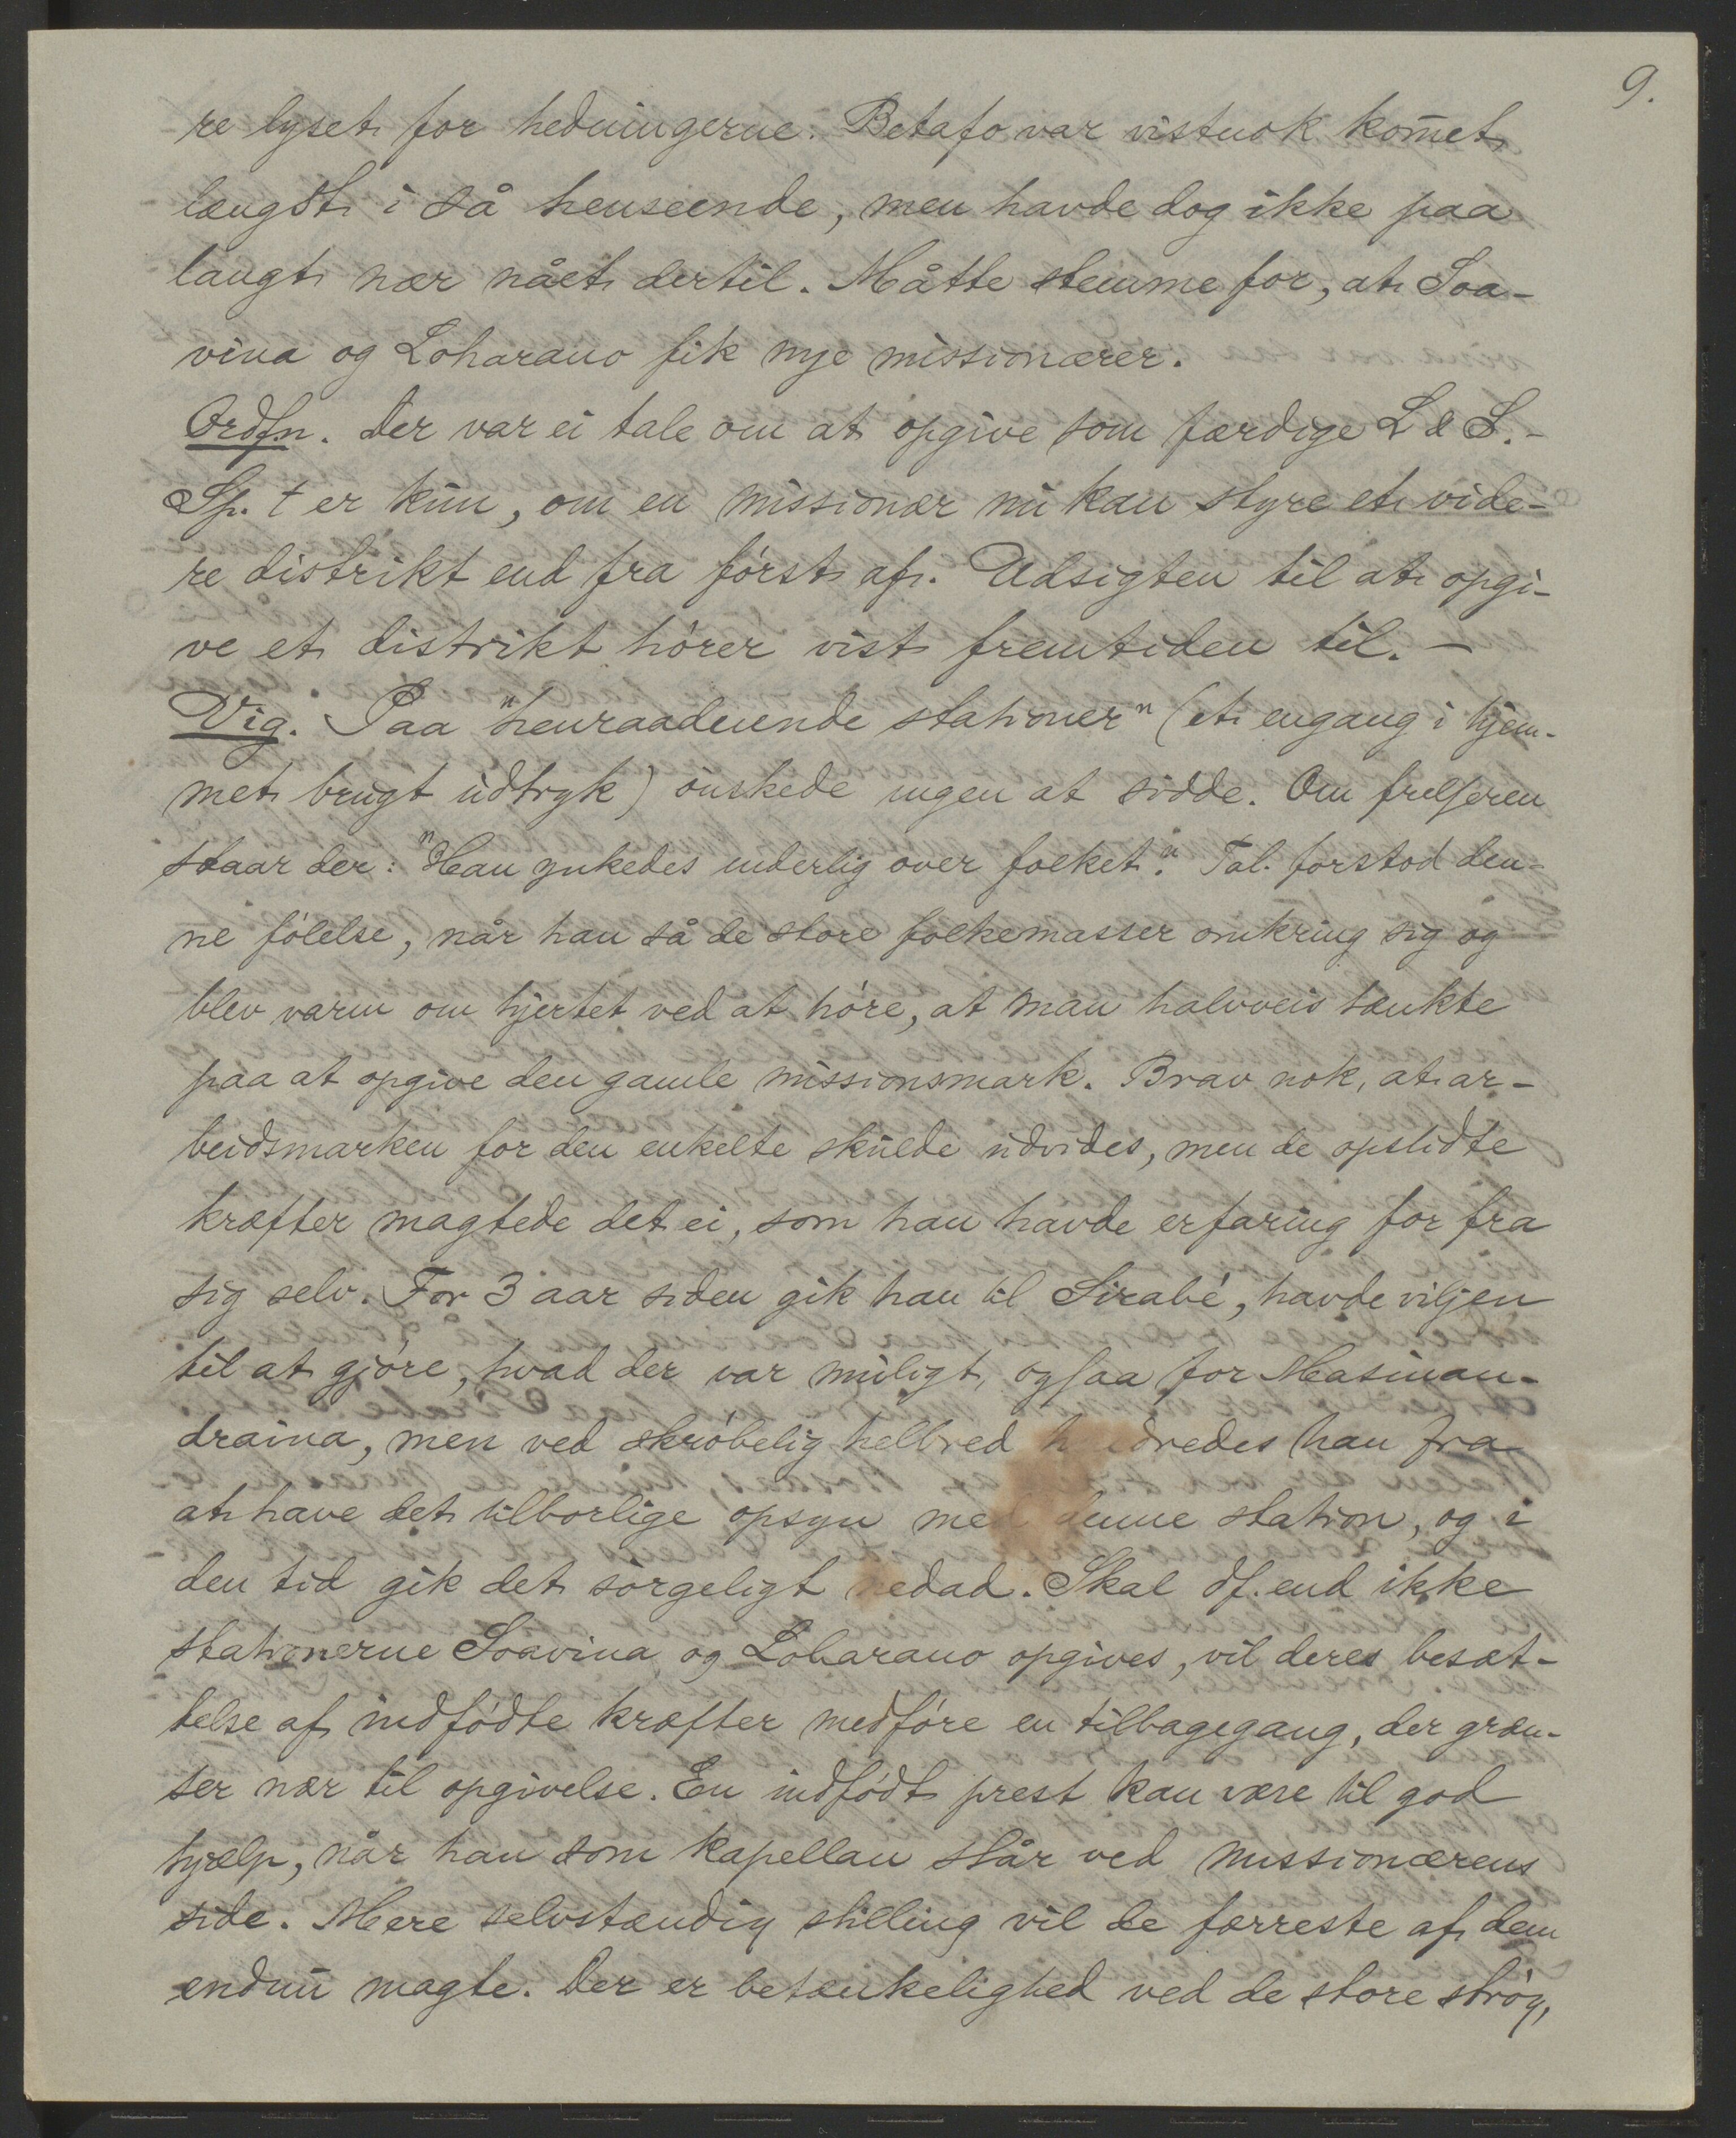 9.
re lyset for hedningerne. Betafo var vistnok kom̄et
længst i så henseende, men havde dog ikke paa
langt nær nået dertil. Måtte stemme for, at Soa-
vina og Loharano fik nye missionærer.
Ordfn. Der var ei tale om at opgive som færdige L & S.-
Sp. t er kun, om en missionær nu kan styre et vide-
re distrikt end fra först af. Udsigten til at opgi-
ve et distrikt hörer vist fremtiden til. —
Vig. Paa "henraadnende stationer" (et engang i hjem-
met brugt udtryk) önskede ingen at sidde. Om frelseren
staar der: "Han ynkedes inderlig over folket". Tal. forstod den-
ne fölelse, når han så de store folkemasser omkring sig og
blev varm om hjertet ved at höre, at man halvveis tænkte
paa at opgive den gamle missionsmark. Brav nok, at ar-
beidsmarken for den enkelte skulde udvides, men de opslidte
kræfter magtede det ei, som han havde erfaring for fra
sig selv. For 3 aar siden gik han til Sirabé, havde viljen
til at gjöre, hvad der var muligt, ogsaa for Masinan-
draina, men ved skröbelig helbred hindredes han fra
at have det tilborlige opsyn med denne station, og i
den tid gik det sörgeligt nedad. Skal df. end ikke
stationerne Soavina og Loharano opgives, vil deres besæt-
telse af indfödte kræfter medföre en tilbagegang, der græn-
ser nær til opgivelse. En indfödt prest kan være til god
hjælp, når han som kapellan står ved missionærens
side. Mere selvstændig stilling vil de færreste af dem
endnu magte. Der er betænkelighed ved de store strög,